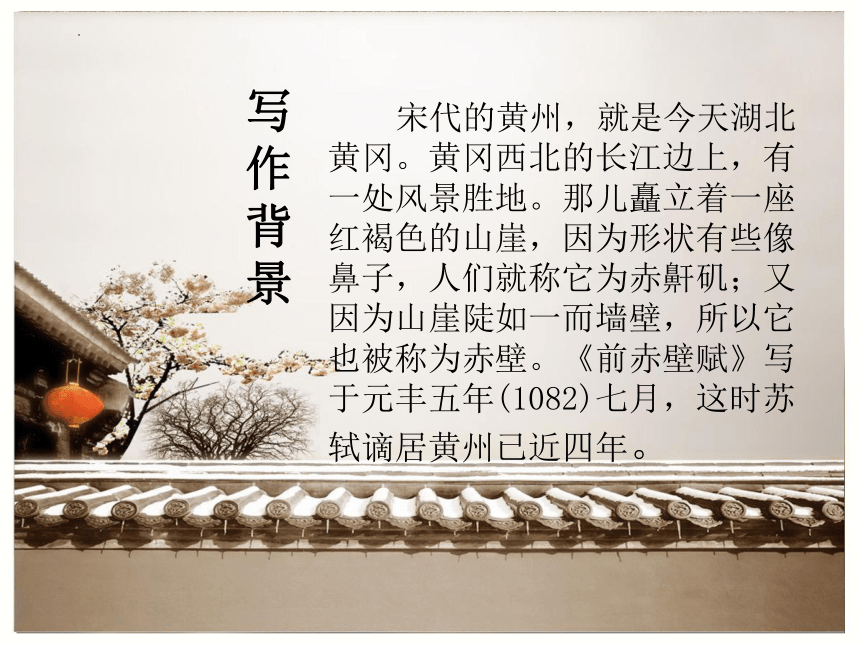 写作背景
宋代的黄州，就是今天湖北
黄冈。黄冈西北的长江边上，有
一处风景胜地。那儿矗立着一座
红褐色的山崖，因为形状有些像
鼻子，人们就称它为赤鼾矶；又
因为山崖陡如一而墙壁，所以它
也被称为赤壁。《前赤壁赋》写
于元丰五年(1082)七月，这时苏
轼谪居黄州已近四年。